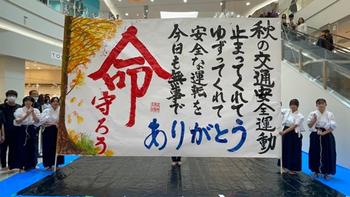 秋の交通安全運動
止まってくれて
ゆずってくれて
安全な運転を
今日も無事で
ありがとう
命
守ろう